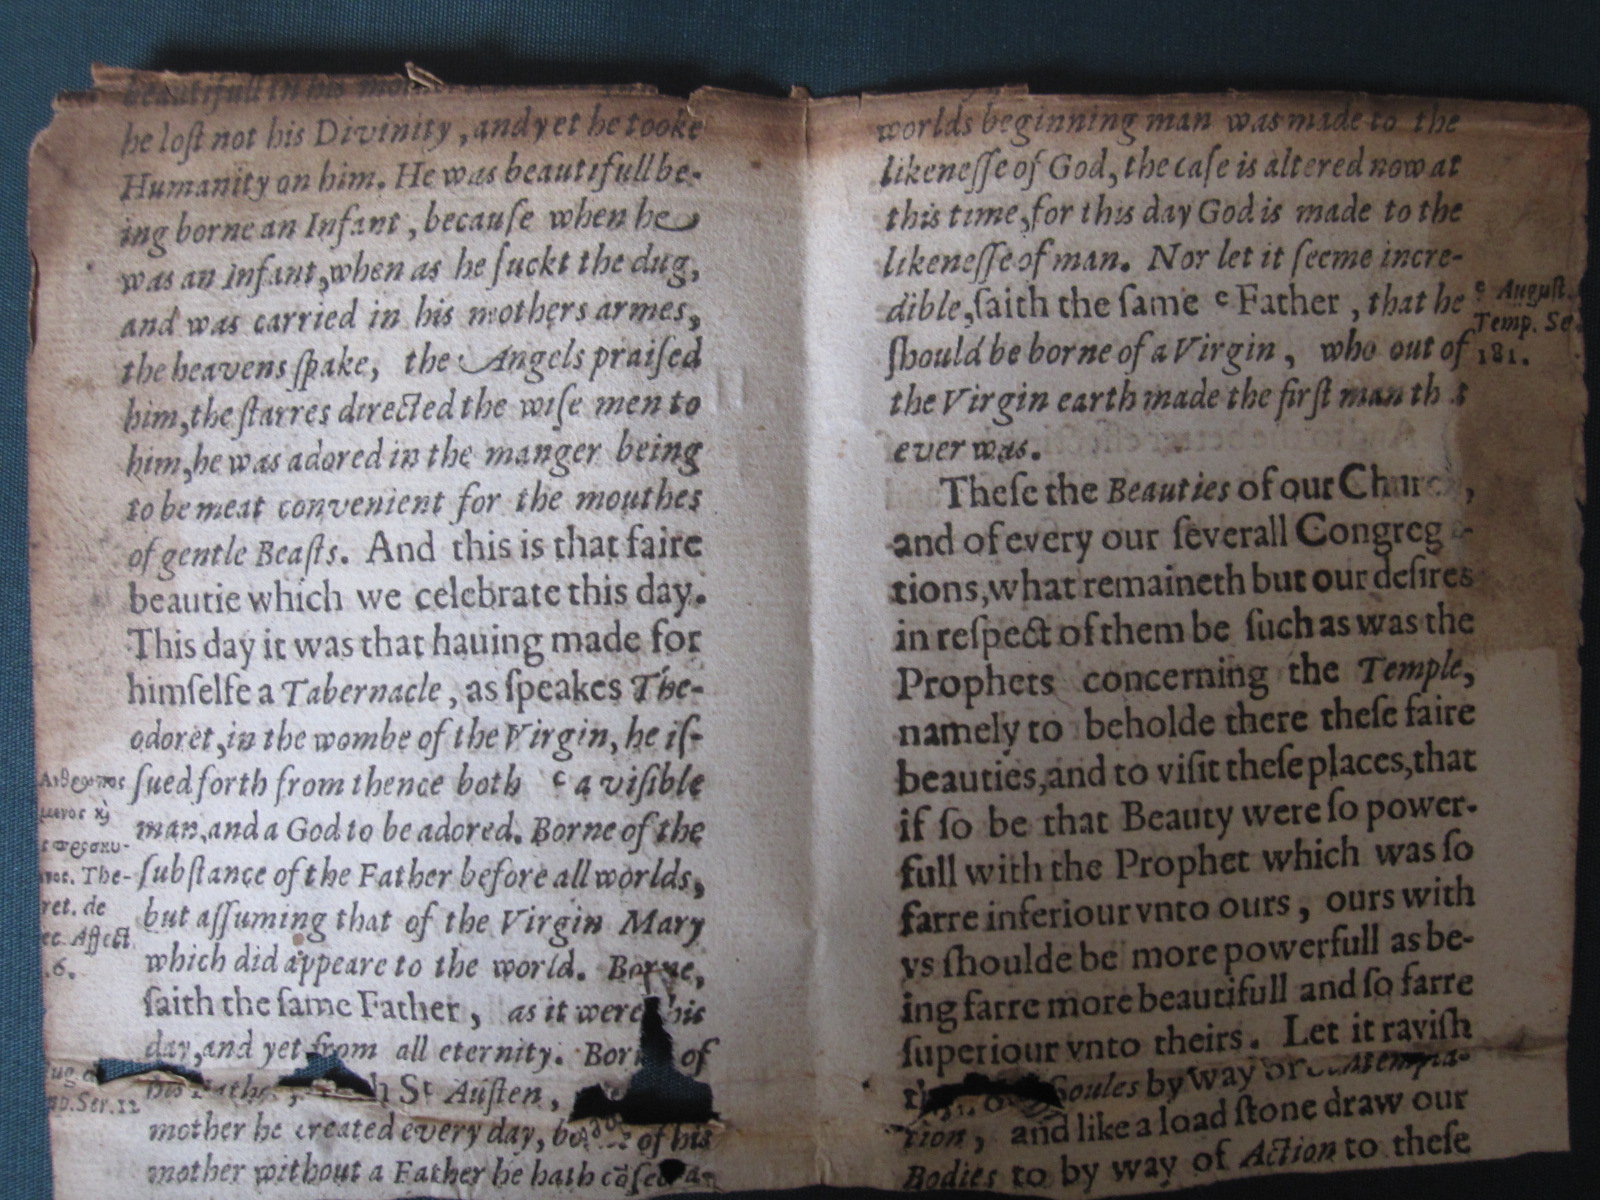 beautifull in his
he lost not his Divinity, and yet he tooke
Humanity on him. He was beautifull be-
ing borne an Infant, because when he
was an Infant, when as he suckt the dug,
and was carried in his mothers armes,
the heavens spake, the Angels praised
him, the starres directed the wise men to
him, he was adored in the manger being
to be meat convenient for the mouthes
of gentle Beasts. And this is that faire
beautie which we celebrate this day.
This day it was that hauing made for
himselfe a Tabernacle, as speakes The-
odoret, in the wombe of the Virgin, he is-
sued forth from thence both c a visible
man, and a God to be adored. Borne of the
substance of the Father before all worlds,
but assuming that of the Virgin Mary
which did appeare to the world. Borne,
saith the same Father, as it were his
day, and yet from all eternity. of
his St Austen,
mother he created every day, of his
mother without a Father he hath
The-
ret. de
Affect.
6.
Ser. 12
worlds beginning man was made to the
likenesse of God, the case is altered now at
this time, for this day God is made to the
likenesse of man. Nor let it seeme incre-
dible, saith the same c Father, that he
should be borne of a Virgin, who out of
the Virgin earth made the first man
ever was.
These the Beauties of our
and of every our severall
tions, what remaineth but our desires
in respect of them be such as was the
Prophets concerning the Temple,
namely to beholde there these faire
beauties, and to visit these places, that
if so be that Beauty were so power-
full with the Prophet which was so
farre inferiour vnto ours, ours with
vs shoulde be more powerfull as be-
ing farre more beautifull and so farre
superiour vnto theirs. Let it ravish
Soules by way or
tion, and like a load stone draw our
Bodies to by way of Action to these
c August.
Temp. Se
181.